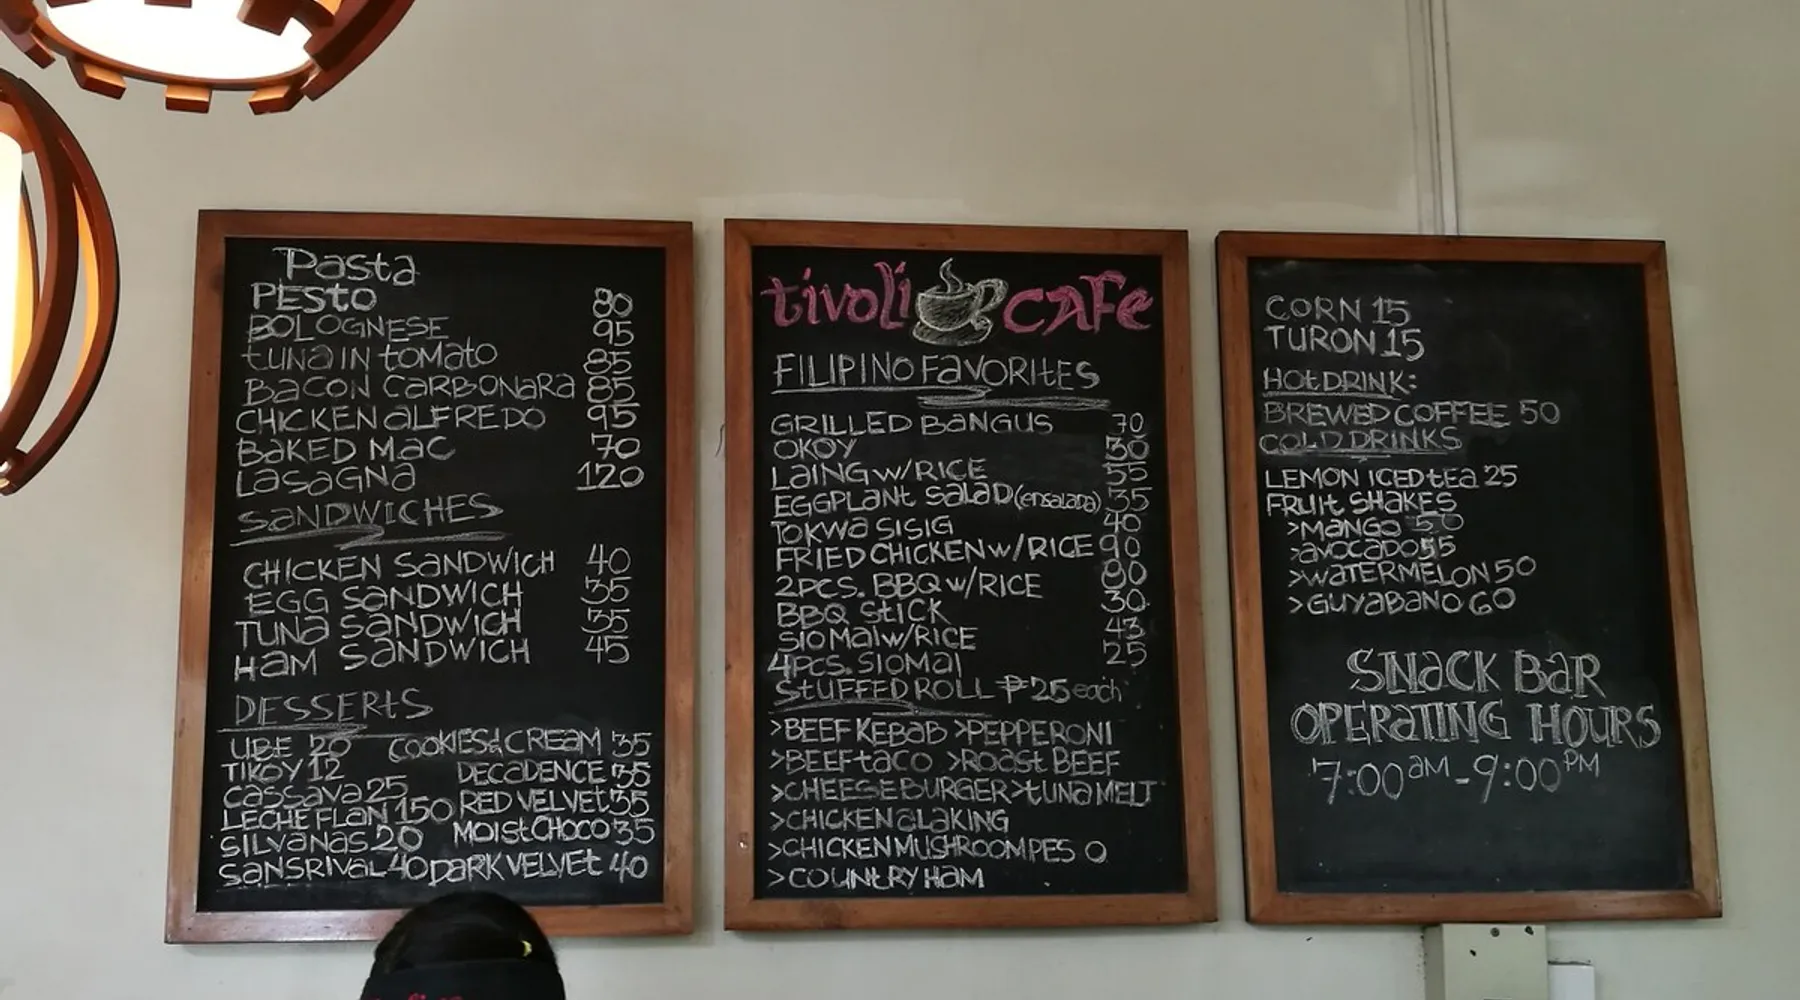 Pasta
PESto 80
BOLOGNESE 95
tuna in tomato 85
Bacon Carbonara 85
CHICKEN aLFREDO 95
BaKED Mac 70
Lasagna 120
SaNDWICHES
CHICKEN SaNDWICH 40
EGG SaNDWICH 35
TUNa SaNDWICH 35
HaM SaNDWICH 45
DESSERtS
UBE 20 COOKIES & CREAM 35
TIKOY 12 DECaDENCE 35
Cassava 25 RED VELVEt 35
LECHE FLaN 150 MOISt CHOCO 35
SILVaNaS 20
SaNSRIVaL 40 DaRK VELVEt 40
tivoli CaFe
FILIPINO FaVORItES
GRILLED BaNGUS 70
OKOY 30
LaING w/RICE 55
EGGPLaNt SaLaD (ensalada) 35
TOKWa SISIG 40
FRIED CHICKEN w/RICE 90
2PCS. BBQ w/RICE 80
BBQ StICK 30
SIOMaI w/RICE 43
4PCS. SIOMaI 25
StUFFED ROLL ₱25 each
>BEEF KEBaB >PEPPERONI
>BEEF taCO >ROaSt BEEF
>CHEESE BURGER >tUNa MELt
>CHICKEN aLaKING
>CHICKEN MUSHROOM PES O
>COUNtRY HaM
CORN 15
TURON 15
HOt DRINK:
BREWED COFFEE 50
COLD DRINKS
LEMON ICED tEa 25
FRUIt SHaKES
>MaNGO 50
>aVOCaDO 55
>WatERMELON 50
>GUYaBaNO 60
SNaCK BaR
OPERatING HOURS
7:00 aM - 9:00 PM